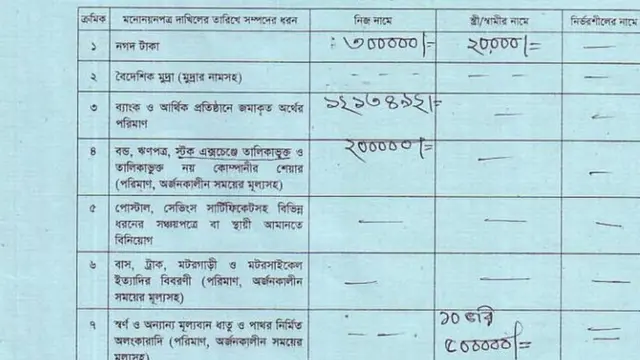 ক্রমিক মনোনয়নপত্র দাখিলের তারিখে সম্পদের ধরন নিজ নামে স্ত্রী/স্বামীর নামে নির্ভরশীলের নামে
১ নগদ টাকা ৩০০০০০/= ২০,০০০/= —
২ বৈদেশিক মুদ্রা (মুদ্রার নামসহ) — — —
৩ ব্যাংক ও আর্থিক প্রতিষ্ঠানে জমাকৃত অর্থের — —
পরিমাণ
৪ বন্ড, ঋণপত্র, স্টক এক্সচেঞ্জে তালিকাভুক্ত ও ২০০০০০/= — —
তালিকাভুক্ত নয় কোম্পানীর শেয়ার
(পরিমাণ, অর্জনকালীন সময়ের মূল্যসহ)
৫ পোস্টাল, সেভিংস সার্টিফিকেটসহ বিভিন্ন — — —
ধরনের সঞ্চয়পত্রে বা স্থায়ী আমানতে
বিনিয়োগ
৬ বাস, ট্রাক, মটরগাড়ী ও মটরসাইকেল — — —
ইত্যাদির বিবরণী (পরিমাণ, অর্জনকালীন
সময়ের মূল্যসহ)
৭ স্বর্ণ ও অন্যান্য মূল্যবান ধাতু ও পাথর নির্মিত — ১০ ভরি —
অলংকারাদি (পরিমাণ, অর্জনকালীন সময়ের ৫০০০০০/=
মূল্যসহ)